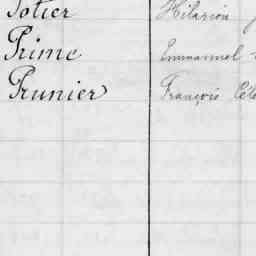 Potier Hilarion
Prime Emmanuel
Prunier François Céle